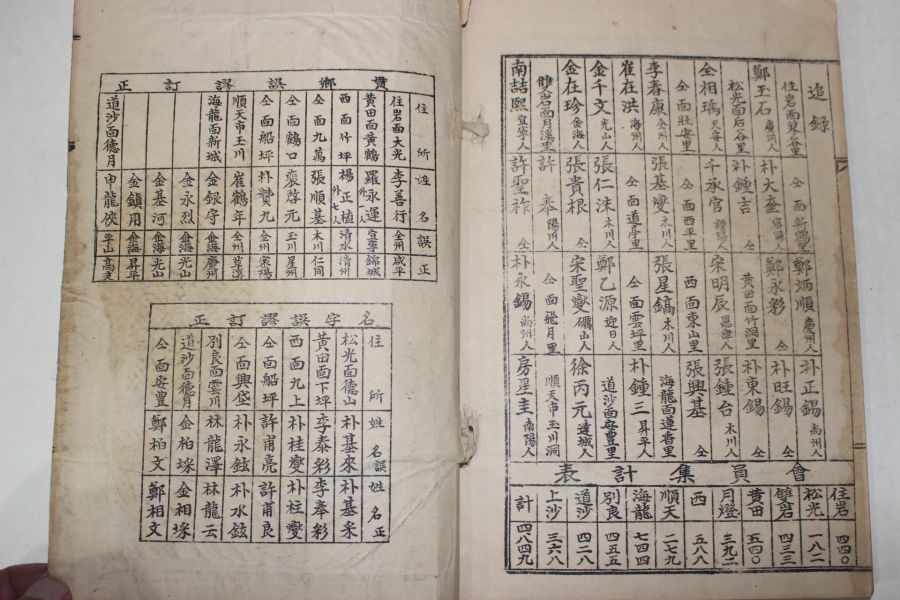 追錄
住岩面泉谷里
鄭玉石 慶州人
松光面后谷里
全相瑀 天安人
仝面壯安里
李春康 仝州人
崔在洪 海州人
金千文 光山人
金在珍 金海人
雙岩面月溪里
南喆熙 宜寧人
朴大奎
朴鍾吉 仝
千承官
仝面西平里
張基燮 木川人
仝面道亭里
張仁洙 仝
張貴根 仝
許奉 陽川人
許聖祚 仝
鄭炳順 慶州人
鄭永彩 仝
黃田面竹洞里
宋明辰 恩津人
西面東山里
張星鎬 木川人
仝面雲坪里
鄭乙源 迎日人
宋聖燮 礪山人
仝面飛月里
朴永錫 尙州人
朴正錫 尙州人
朴旺錫 仝
朴東錫 仝
張鍾台 木川人
張興基 仝
海龍面蓮香里
朴鍾三 昇平人
道沙面安豊里
徐丙元 達城人
順天市玉川洞
房星圭 南陽人
會員集計表
住岩 四四〇
松光 一八二
雙岩 四三三
黃田 五四〇
月燈 三九二
西 五八八
順天 二七九
海龍 七四四
別良 四五五
道沙 四二八
上沙 三六八
計 四八四九
貫鄕誤謬訂正
住所 姓名 誤 正
住岩面大光 李善行 全州 咸平
黃田面黃鶴 羅永運 外一人 宜寧 錦城
西面竹坪 楊正植 外七人 淸水 淸州
仝面九萬 張順基 木川 仁同
仝面鶴口 裵啓元 玉川 星州
仝面船坪 朴贊九 仝州 密陽
順天市玉川 崔鶴年 仝州 草溪
海龍面新城 金銀守 金海 慶州
金永烈 金海 光山
金基河 金海 光山
金鎭用 金海 昇平
道沙面德月 申龍俠 平山 高灵
名字誤謬訂正
住所 姓名誤 姓名正
松光面德山 朴基來 朴基采
黃田面下坪 李泰彩 李奉彩
西面九上 朴桂燮 朴柱燮
仝面船坪 許甫亮 許甫良
仝面興垈 朴永鉉 朴水鉉
別良面雲川 林龍澤 林龍云
道沙面德月 金柏琛 金相琛
仝面安豊 鄭柏文 鄭相文